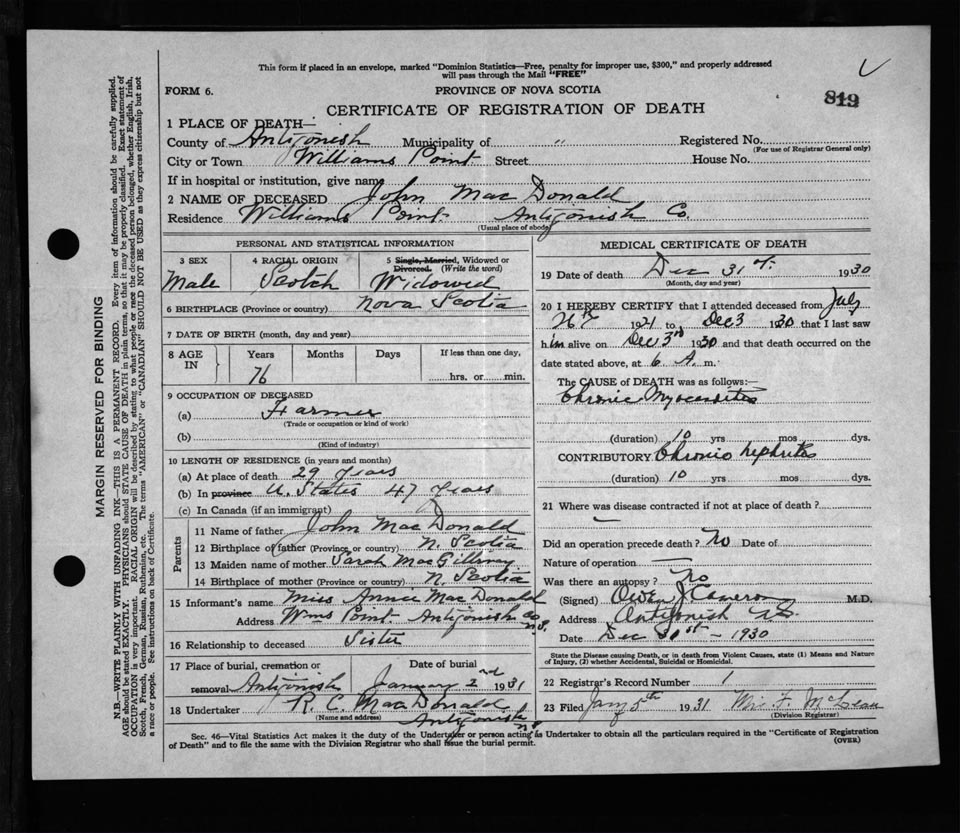 This form if placed in an envelope, marked "Dominion Statistics—Free, penalty for improper use, $300," and properly addressed
will pass through the Mail "FREE"
FORM 6.
PROVINCE OF NOVA SCOTIA
819
CERTIFICATE OF REGISTRATION OF DEATH
1 PLACE OF DEATH—
County of Antigonish Municipality of " Registered No.
(For use of Registrar General only)
City or Town Williams Point Street House No.
If in hospital or institution, give name
2 NAME OF DECEASED John MacDonald
Residence Williams Point Antigonish Co.
(Usual place of abode)
PERSONAL AND STATISTICAL INFORMATION
3 SEX 4 RACIAL ORIGIN 5 Single, Married, Widowed or
Divorced. (Write the word)
Male Scotch Widowed
6 BIRTHPLACE (Province or country) Nova Scotia
7 DATE OF BIRTH (month, day and year)
8 AGE IN Years Months Days If less than one day,
76 hrs. or min.
9 OCCUPATION OF DECEASED
(a) Farmer
(Trade or occupation or kind of work)
(b)
(Kind of industry)
10 LENGTH OF RESIDENCE (in years and months)
(a) At place of death 29 years
(b) In province U. States 47 years
(c) In Canada (if an immigrant)
Parents
11 Name of father John MacDonald
12 Birthplace of father (Province or country) N. Scotia
13 Maiden name of mother Sarah MacGillivray
14 Birthplace of mother (Province or country) N. Scotia
15 Informant's name Miss Annie MacDonald
Address Wms Point Antigonish Co N.S.
16 Relationship to deceased Sister
17 Place of burial, cremation or Date of burial
removal Antigonish January 2nd 1931
18 Undertaker R. C. MacDonald
(Name and address) Antigonish N.S.
MEDICAL CERTIFICATE OF DEATH
19 Date of death Dec 31st 1930
(Month, day and year)
20 I HEREBY CERTIFY that I attended deceased from July
26th 1921 to Dec 3 1930 that I last saw
him alive on Dec 3rd 1930 and that death occurred on the
date stated above, at 6 A. m.
The CAUSE OF DEATH was as follows:—
Chronic Myocarditis
(duration) 10 yrs mos dys.
CONTRIBUTORY Chronic nephritis
(duration) 10 yrs mos dys.
21 Where was disease contracted if not at place of death?
Did an operation precede death? No Date of
Nature of operation —
Was there an autopsy? No
(Signed) Owen J Cameron M.D.
Address Antigonish N.S.
Date Dec 31st – 1930
State the Disease causing Death, or in death from Violent Causes, state (1) Means and Nature
of Injury, (2) whether Accidental, Suicidal or Homicidal.
22 Registrar's Record Number 1
23 Filed Jany 5th 1931 Mrs F. McLean
(Division Registrar)
Sec. 46—Vital Statistics Act makes it the duty of the Undertaker or person acting as Undertaker to obtain all the particulars required in the "Certificate of Registration
of Death" and to file the same with the Division Registrar who shall issue the burial permit.
(OVER)
MARGIN RESERVED FOR BINDING
N.B. WRITE PLAINLY WITH UNFADING INK—THIS IS A PERMANENT RECORD. Every item of information should be carefully supplied.
AGE should be stated EXACTLY. PHYSICIANS should STATE CAUSE OF DEATH in plain terms, so that it may be properly classified. Exact statement of
OCCUPATION is very important. RACIAL ORIGIN will be described by stating to what people or race the deceased person belonged, whether English, Irish,
Scotch, French, German, Russian, Ruthenian, etc. The terms "AMERICAN" or "CANADIAN" SHOULD NOT BE USED as they express citizenship but not
a race or people. See instructions on back of Certificate.